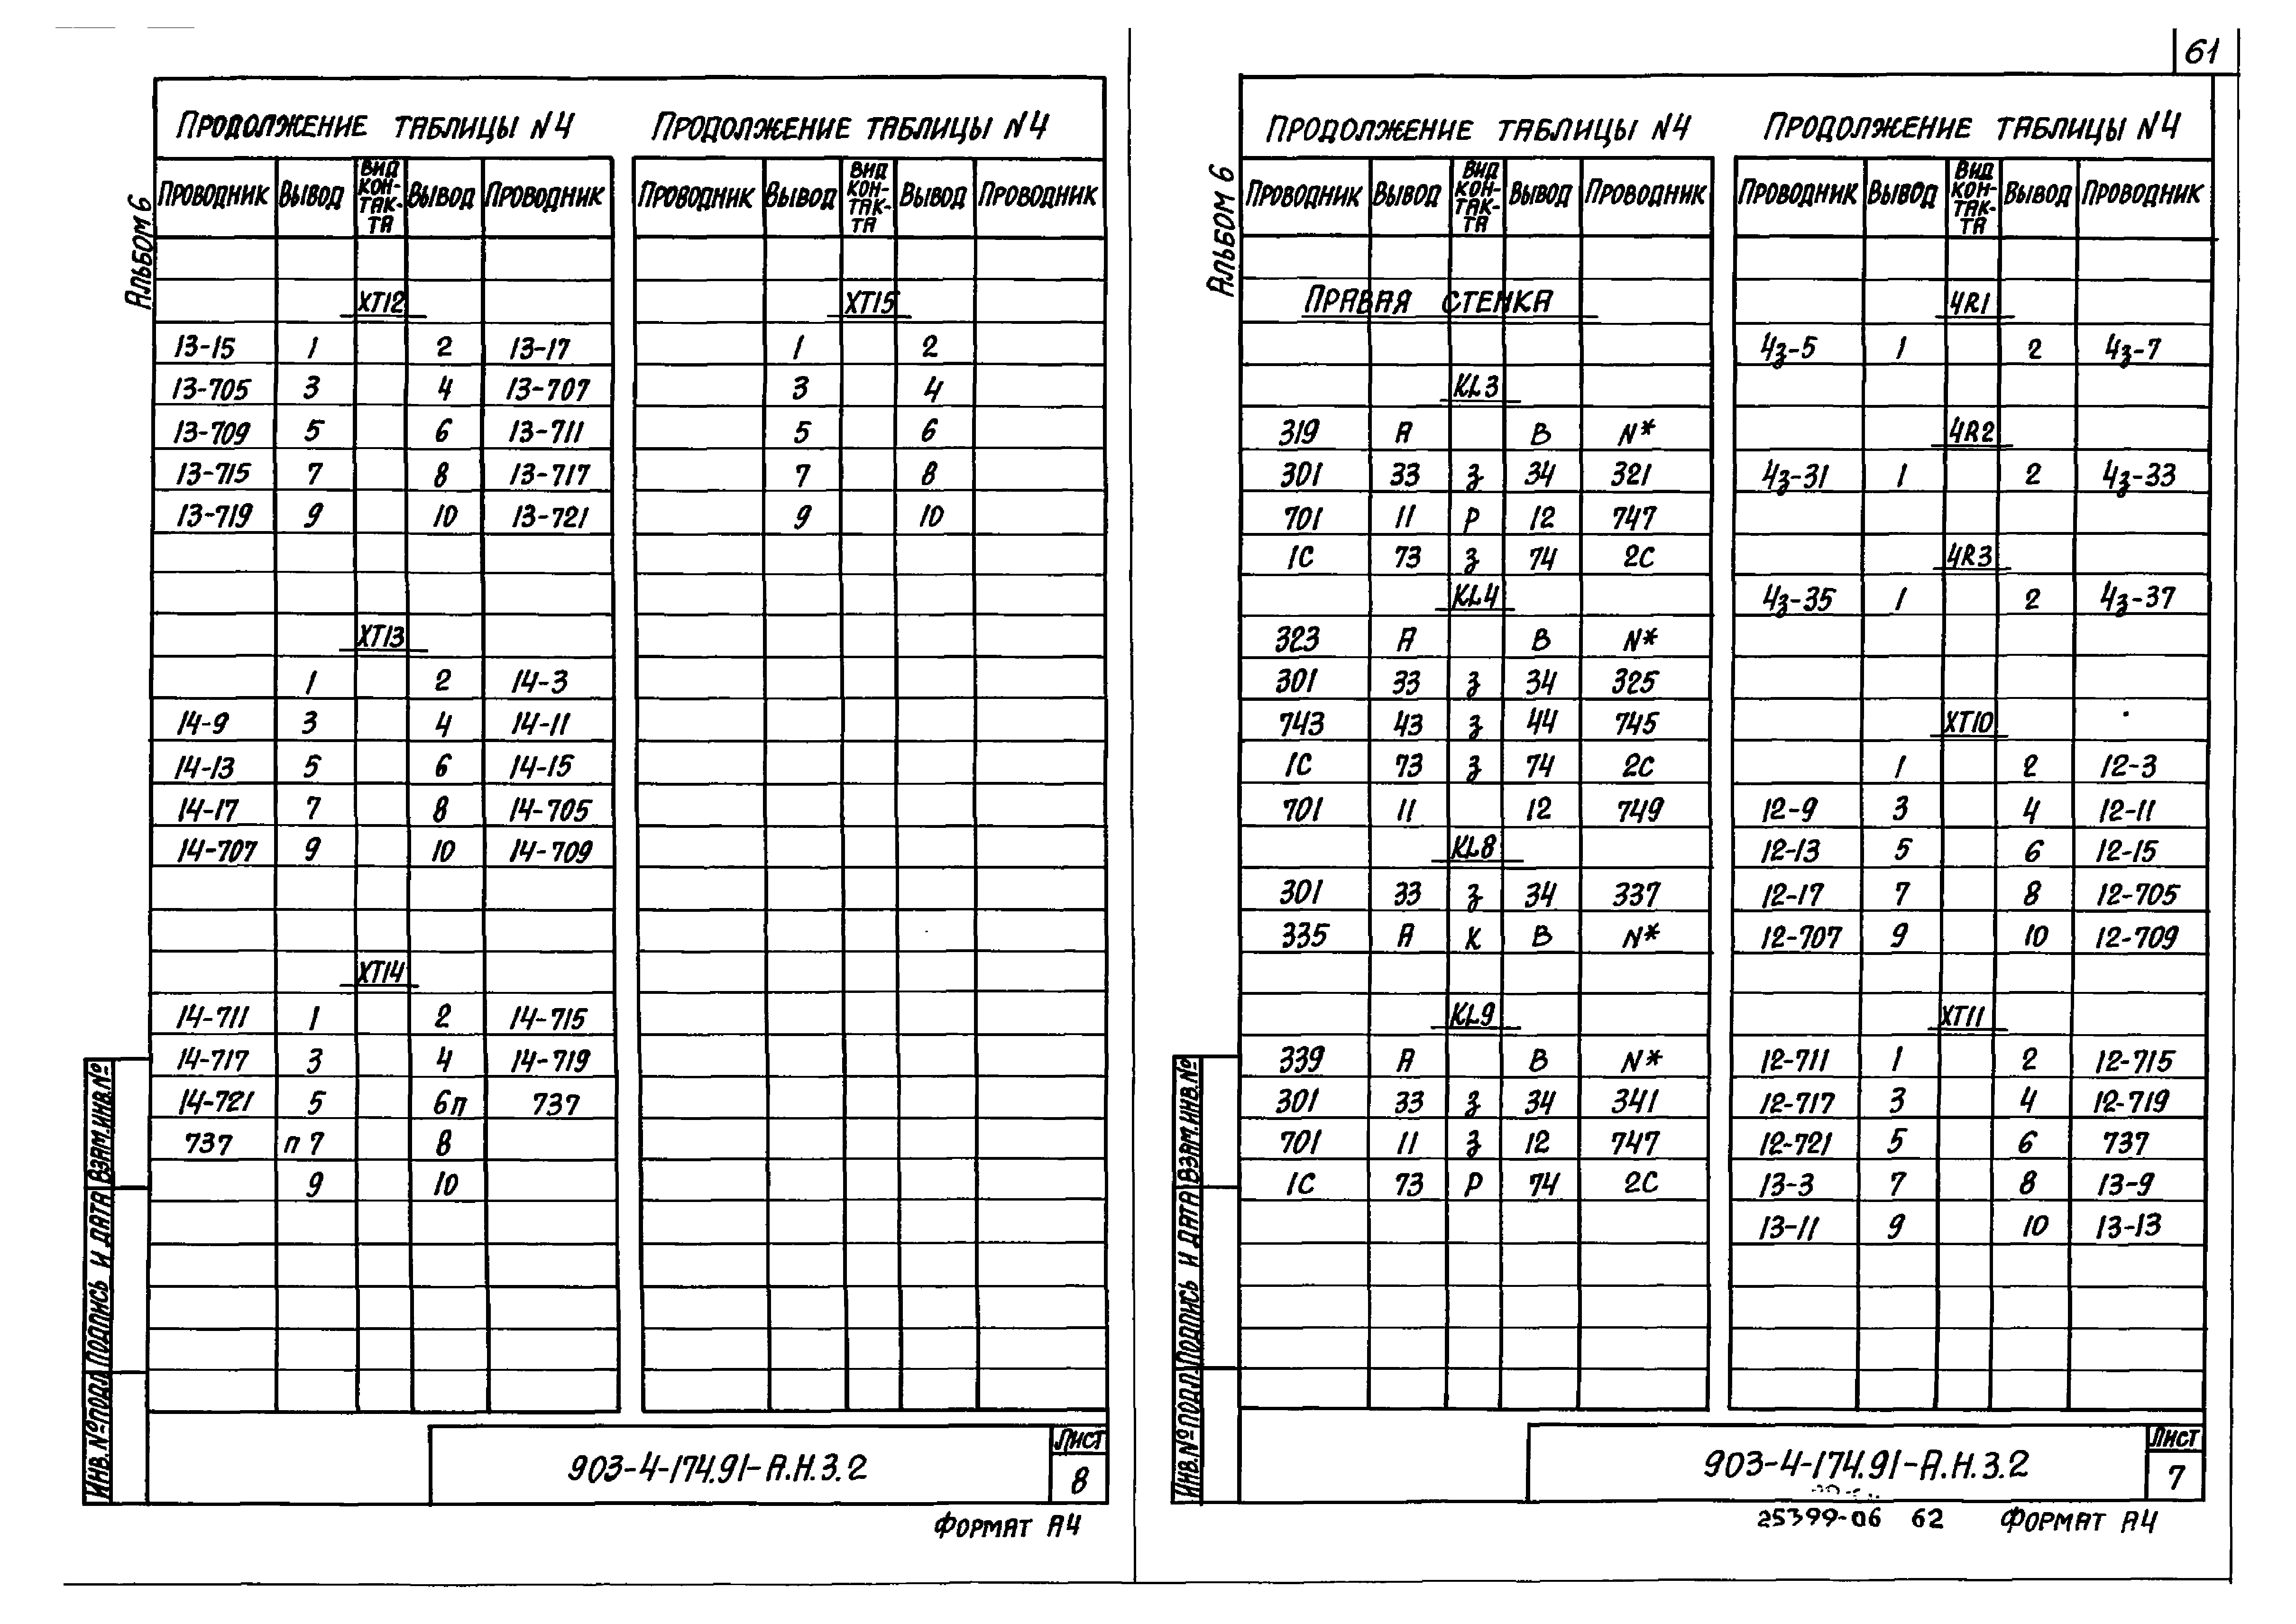 61
Альбом 6
Продолжение таблицы N4
Проводник Вывод Вид контакта Вывод Проводник
XT12
13-15 1 2 13-17
13-705 3 4 13-707
13-709 5 6 13-711
13-715 7 8 13-717
13-719 9 10 13-721
XT13
1 2 14-3
14-9 3 4 14-11
14-13 5 6 14-15
14-17 7 8 14-705
14-707 9 10 14-709
XT14
14-711 1 2 14-715
14-717 3 4 14-719
14-721 5 6п 737
737 п7 8
9 10
Продолжение таблицы N4
Проводник Вывод Вид контакта Вывод Проводник
XT15
1 2
3 4
5 6
7 8
9 10
Инв.№подл Подпись и дата Взам.инв.№
903-4-174.91-А.Н.3.2
Лист
8
Формат А4
Альбом 6
Продолжение таблицы N4
Проводник Вывод Вид контакта Вывод Проводник
Правая стенка
KL3
319 А В N*
301 33 з 34 321
701 11 р 12 747
1С 73 з 74 2С
KL4
323 А В N*
301 33 з 34 325
743 43 з 44 745
1С 73 з 74 2С
701 11 12 749
KL8
301 33 з 34 337
335 А К В N*
KL9
339 А В N*
301 33 з 34 341
701 11 з 12 747
1С 73 р 74 2С
Продолжение таблицы N4
Проводник Вывод Вид контакта Вывод Проводник
4R1
4з-5 1 2 4з-7
4R2
4з-31 1 2 4з-33
4R3
4з-35 1 2 4з-37
XT10
1 2 12-3
12-9 3 4 12-11
12-13 5 6 12-15
12-17 7 8 12-705
12-707 9 10 12-709
XT11
12-711 1 2 12-715
12-717 3 4 12-719
12-721 5 6 737
13-3 7 8 13-9
13-11 9 10 13-13
Инв.№подл. Подпись и дата Взам.инв.№
903-4-174.91-А.Н.3.2
Лист
7
25399-06 62 Формат А4